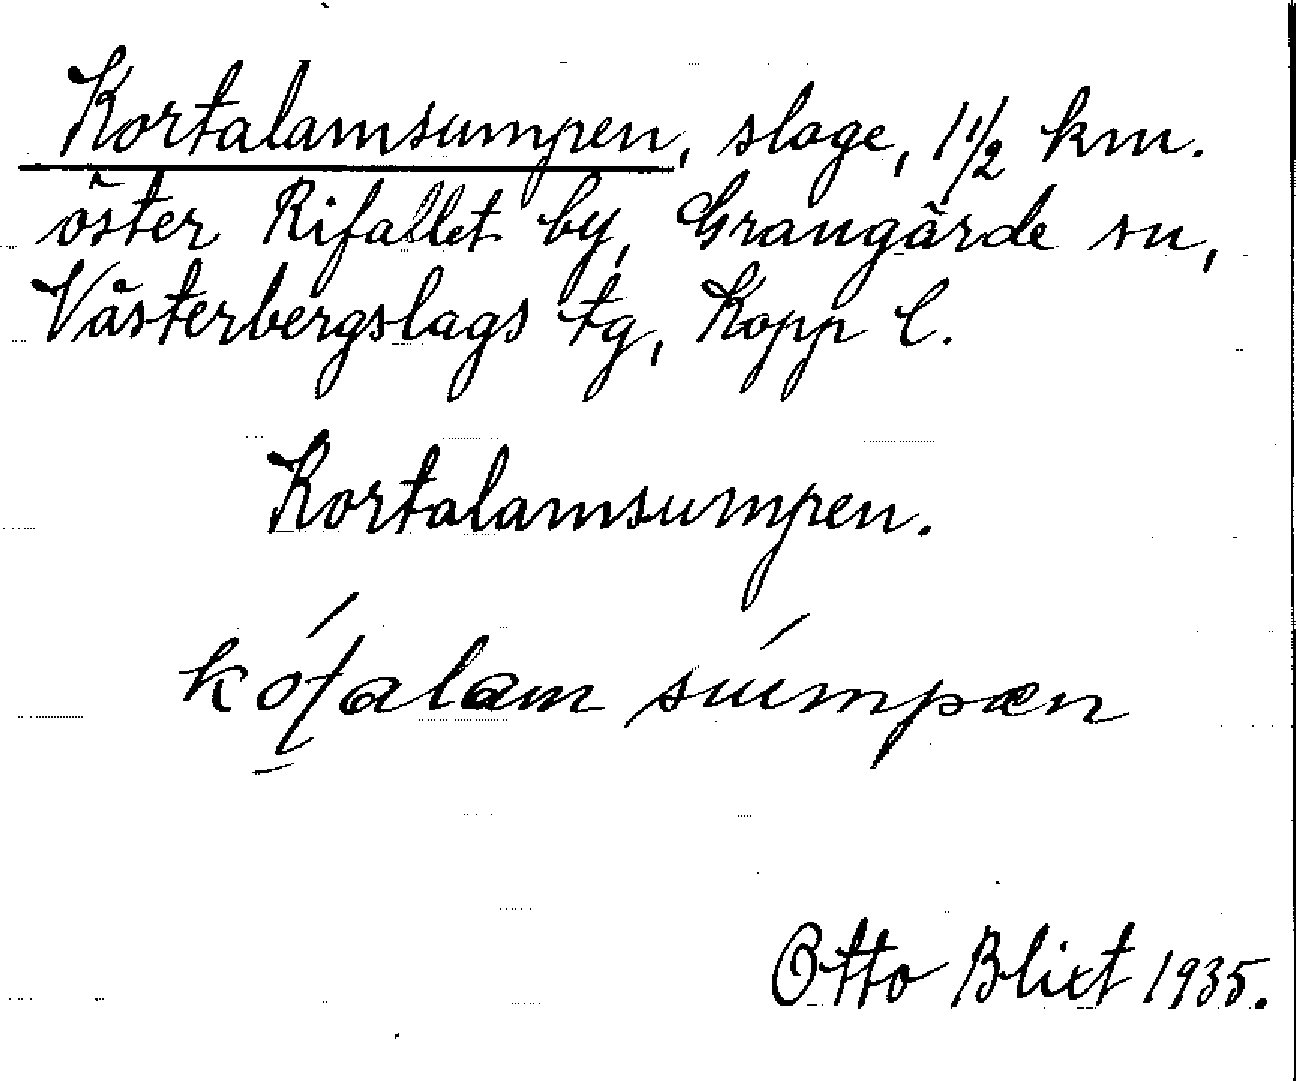 Kortalamsumpen, slage, 1 1/2 km.
öster Rifallet by, Grangärde sn,
Västerbergslags tg, Kopp l.
Kortalamsumpen.
kótalam súmpæn
Otto Blixt 1935.